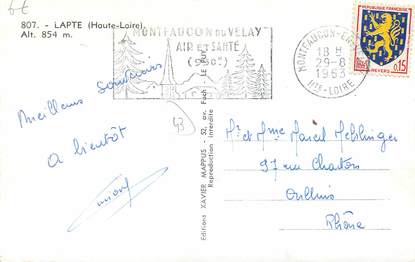 807. - LAPTE (Haute-Loire).
Alt. 854 m.
MONTFAUCON DU VELAY
AIR ET SANTÉ
MONTFAUCON-EN-
18 H
29-8
1963
HTE-LOIRE
RÉPUBLIQUE FRANÇAISE
0,15
NEVERS
Meilleurs Souvenirs
A bientôt
43
Editions XAVIER MAPPUS - 32, av. Foch - LE PUY
Reproduction Interdite
Mr et Mme Marcel
97 rue Charton
Oullins
Rhône